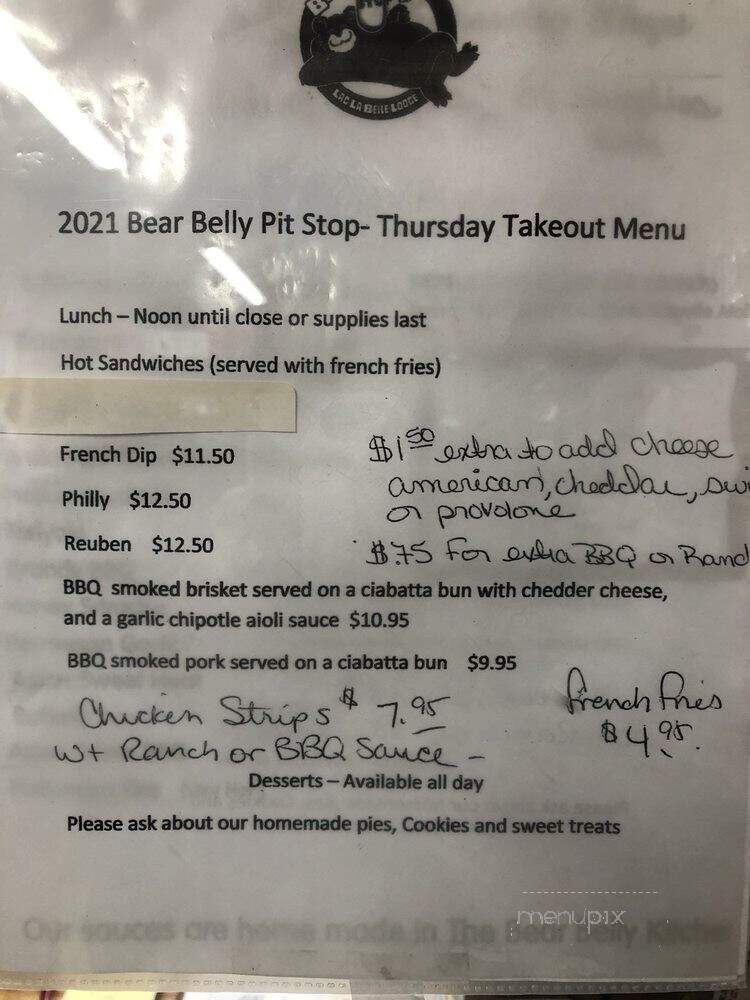 LAC LA BELLE LODGE
2021 Bear Belly Pit Stop- Thursday Takeout Menu
Lunch – Noon until close or supplies last
Hot Sandwiches (served with french fries)
French Dip $11.50
$1.50 extra to add cheese
american, cheddar, swi
or provolone
Philly $12.50
Reuben $12.50
$.75 For extra BBQ or Ranc
BBQ smoked brisket served on a ciabatta bun with chedder cheese,
and a garlic chipotle aioli sauce $10.95
BBQ smoked pork served on a ciabatta bun $9.95
Chicken Strips $7.95
wt Ranch or BBQ Sauce -
French Fries
$4.95.
Desserts – Available all day
Please ask about our homemade pies, Cookies and sweet treats
menupix
Our sauces are home made in The Bear Belly Kitche